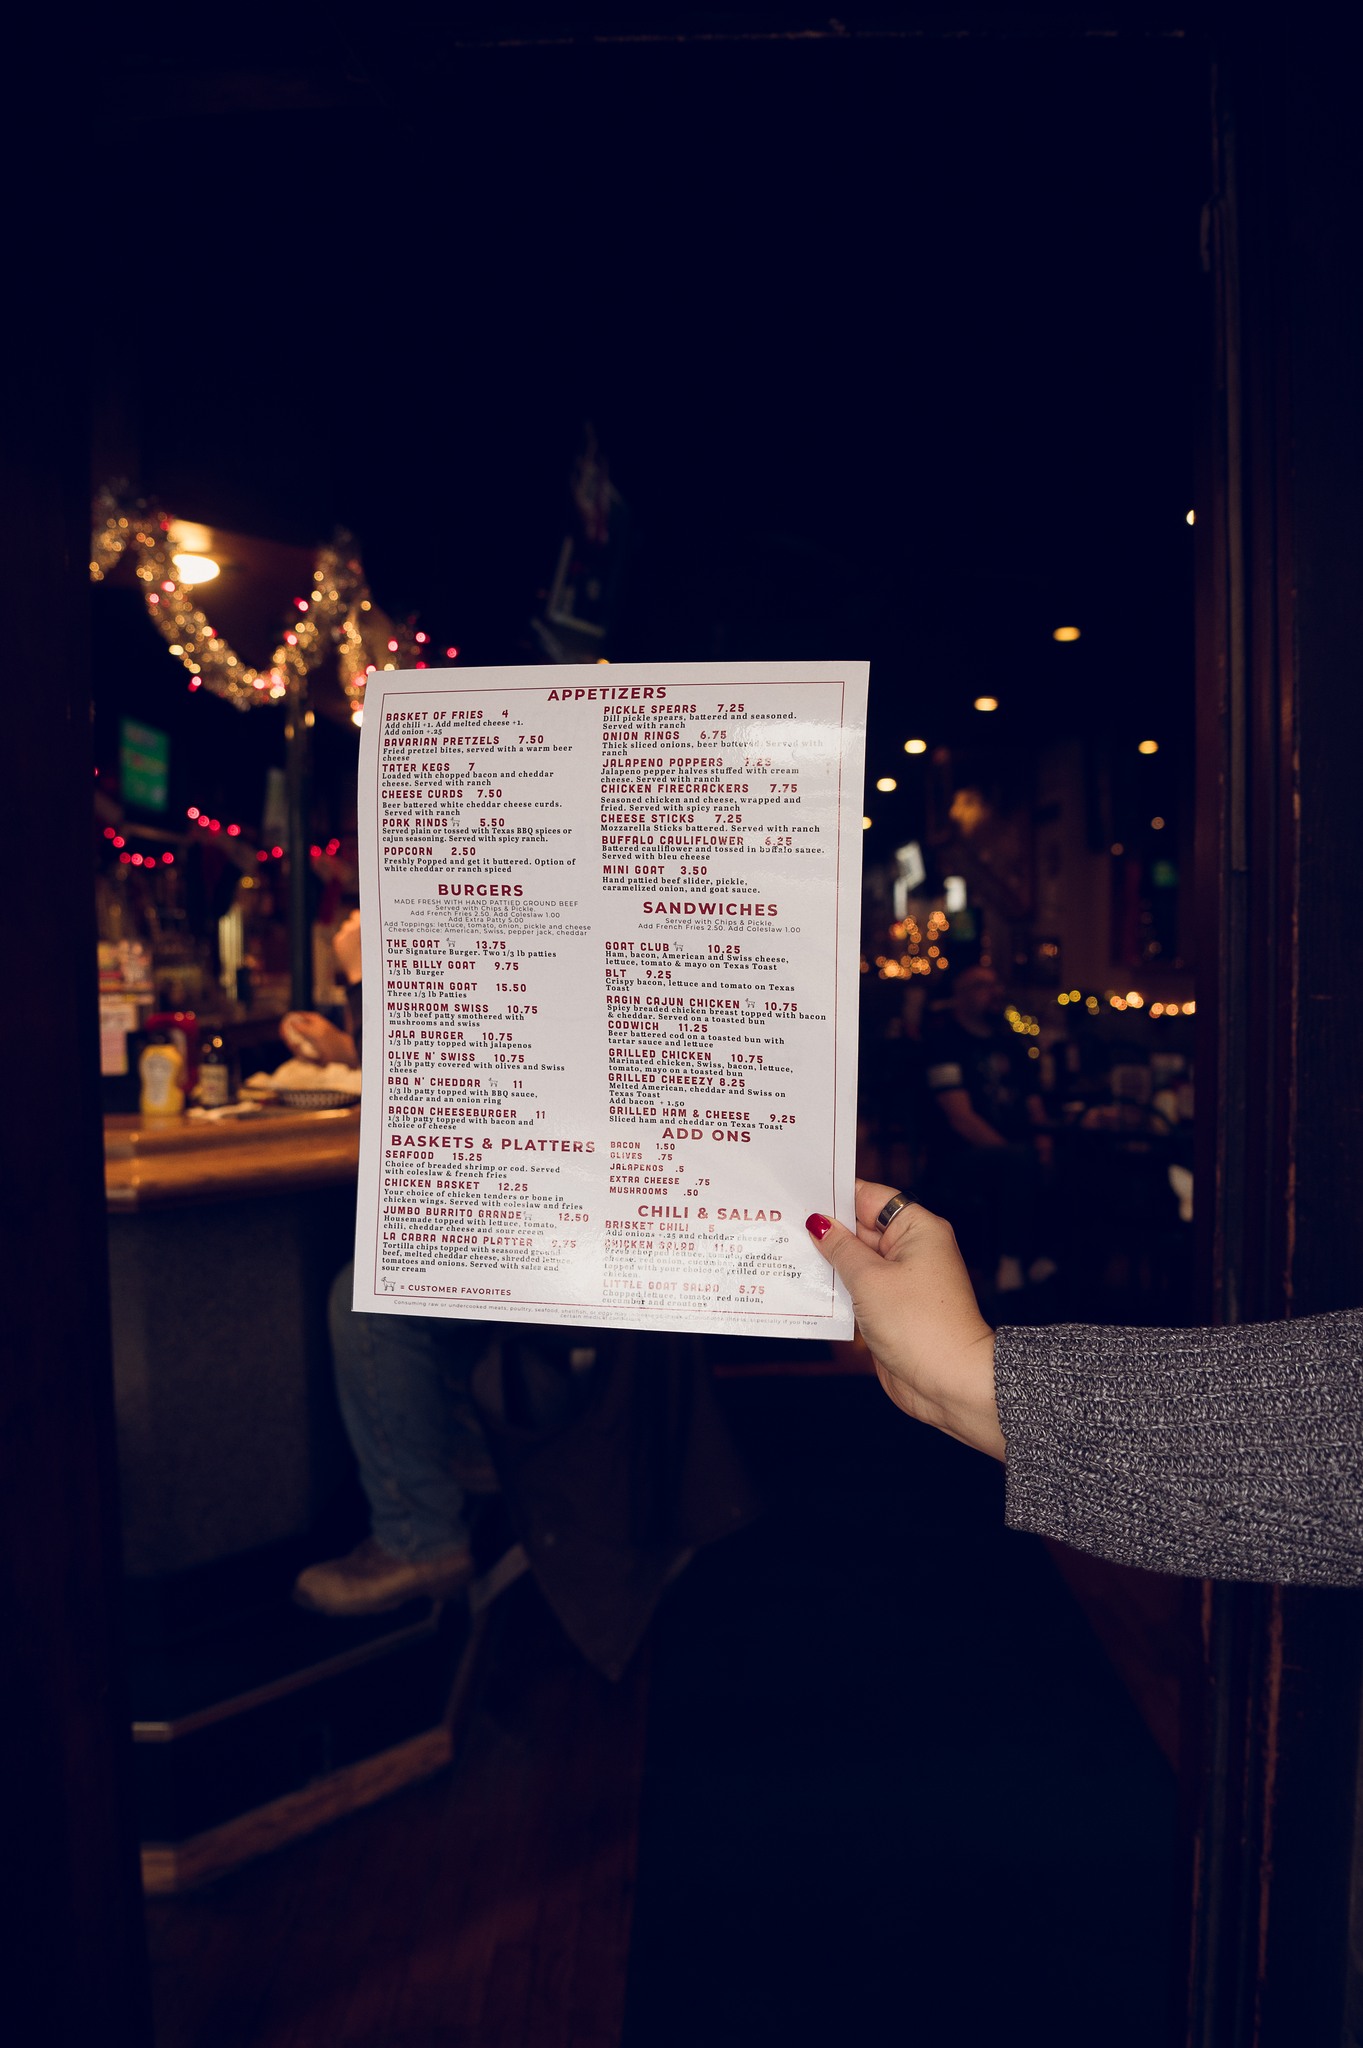 APPETIZERS
BASKET OF FRIES 4
Add chili +1. Add melted cheese +1.
Add onion +.25
BAVARIAN PRETZELS 7.50
Fried pretzel bites, served with a warm beer
cheese
TATER KEGS 7
Loaded with chopped bacon and cheddar
cheese. Served with ranch
CHEESE CURDS 7.50
Beer battered white cheddar cheese curds.
Served with ranch
PORK RINDS 5.50
Served plain or tossed with Texas BBQ spices or
cajun seasoning. Served with spicy ranch.
POPCORN 2.50
Freshly Popped and get it buttered. Option of
white cheddar or ranch spiced
PICKLE SPEARS 7.25
Dill pickle spears, battered and seasoned.
Served with ranch
ONION RINGS 6.75
Thick sliced onions, beer battered. Served with
ranch
JALAPENO POPPERS 7.25
Jalapeno pepper halves stuffed with cream
cheese. Served with ranch
CHICKEN FIRECRACKERS 7.75
Seasoned chicken and cheese, wrapped and
fried. Served with spicy ranch
CHEESE STICKS 7.25
Mozzarella Sticks battered. Served with ranch
BUFFALO CAULIFLOWER 6.25
Battered cauliflower and tossed in buffalo sauce.
Served with bleu cheese
MINI GOAT 3.50
Hand pattied beef slider, pickle,
caramelized onion, and goat sauce.
BURGERS
MADE FRESH WITH HAND PATTIED GROUND BEEF
Served with Chips & Pickle.
Add French Fries 2.50. Add Coleslaw 1.00
Add Extra Patty 5.00
Add Toppings: lettuce, tomato, onion, pickle and cheese
Cheese choice: American, Swiss, pepper jack, cheddar
THE GOAT 13.75
Our Signature Burger. Two 1/3 lb patties
THE BILLY GOAT 9.75
1/3 lb Burger
MOUNTAIN GOAT 15.50
Three 1/3 lb Patties
MUSHROOM SWISS 10.75
1/3 lb beef patty smothered with
mushrooms and swiss
JALA BURGER 10.75
1/3 lb patty topped with jalapenos
OLIVE N' SWISS 10.75
1/3 lb patty covered with olives and Swiss
cheese
BBQ N' CHEDDAR 11
1/3 lb patty topped with BBQ sauce,
cheddar and an onion ring
BACON CHEESEBURGER 11
1/3 lb patty topped with bacon and
choice of cheese
SANDWICHES
Served with Chips & Pickle.
Add French Fries 2.50. Add Coleslaw 1.00
GOAT CLUB 10.25
Ham, bacon, American and Swiss cheese,
lettuce, tomato & mayo on Texas Toast
BLT 9.25
Crispy bacon, lettuce and tomato on Texas
Toast
RAGIN CAJUN CHICKEN 10.75
Spicy breaded chicken breast topped with bacon
& cheddar. Served on a toasted bun
CODWICH 11.25
Beer battered cod on a toasted bun with
tartar sauce and lettuce
GRILLED CHICKEN 10.75
Marinated chicken, Swiss, bacon, lettuce,
tomato, mayo on a toasted bun
GRILLED CHEEEZY 8.25
Melted American, cheddar and Swiss on
Texas Toast
Add bacon + 1.50
GRILLED HAM & CHEESE 9.25
Sliced ham and cheddar on Texas Toast
BASKETS & PLATTERS
SEAFOOD 15.25
Choice of breaded shrimp or cod. Served
with coleslaw & french fries
CHICKEN BASKET 12.25
Your choice of chicken tenders or bone in
chicken wings. Served with coleslaw and fries
JUMBO BURRITO GRANDE 12.50
Housemade topped with lettuce, tomato,
chili, cheddar cheese and sour cream
LA CABRA NACHO PLATTER 9.75
Tortilla chips topped with seasoned ground
beef, melted cheddar cheese, shredded lettuce,
tomatoes and onions. Served with salsa and
sour cream
ADD ONS
BACON 1.50
OLIVES .75
JALAPENOS .5
EXTRA CHEESE .75
MUSHROOMS .50
CHILI & SALAD
BRISKET CHILI 5
Add onions +.25 and cheddar cheese +.50
CHICKEN SALAD 11.50
Fresh chopped lettuce, tomato, cheddar
cheese, red onion, cucumber, and crutons,
topped with your choice of grilled or crispy
chicken.
LITTLE GOAT SALAD 5.75
Chopped lettuce, tomato, red onion,
cucumber and croutons
= CUSTOMER FAVORITES
Consuming raw or undercooked meats, poultry, seafood, shellfish, or eggs may especially if you have
certain medical conditions